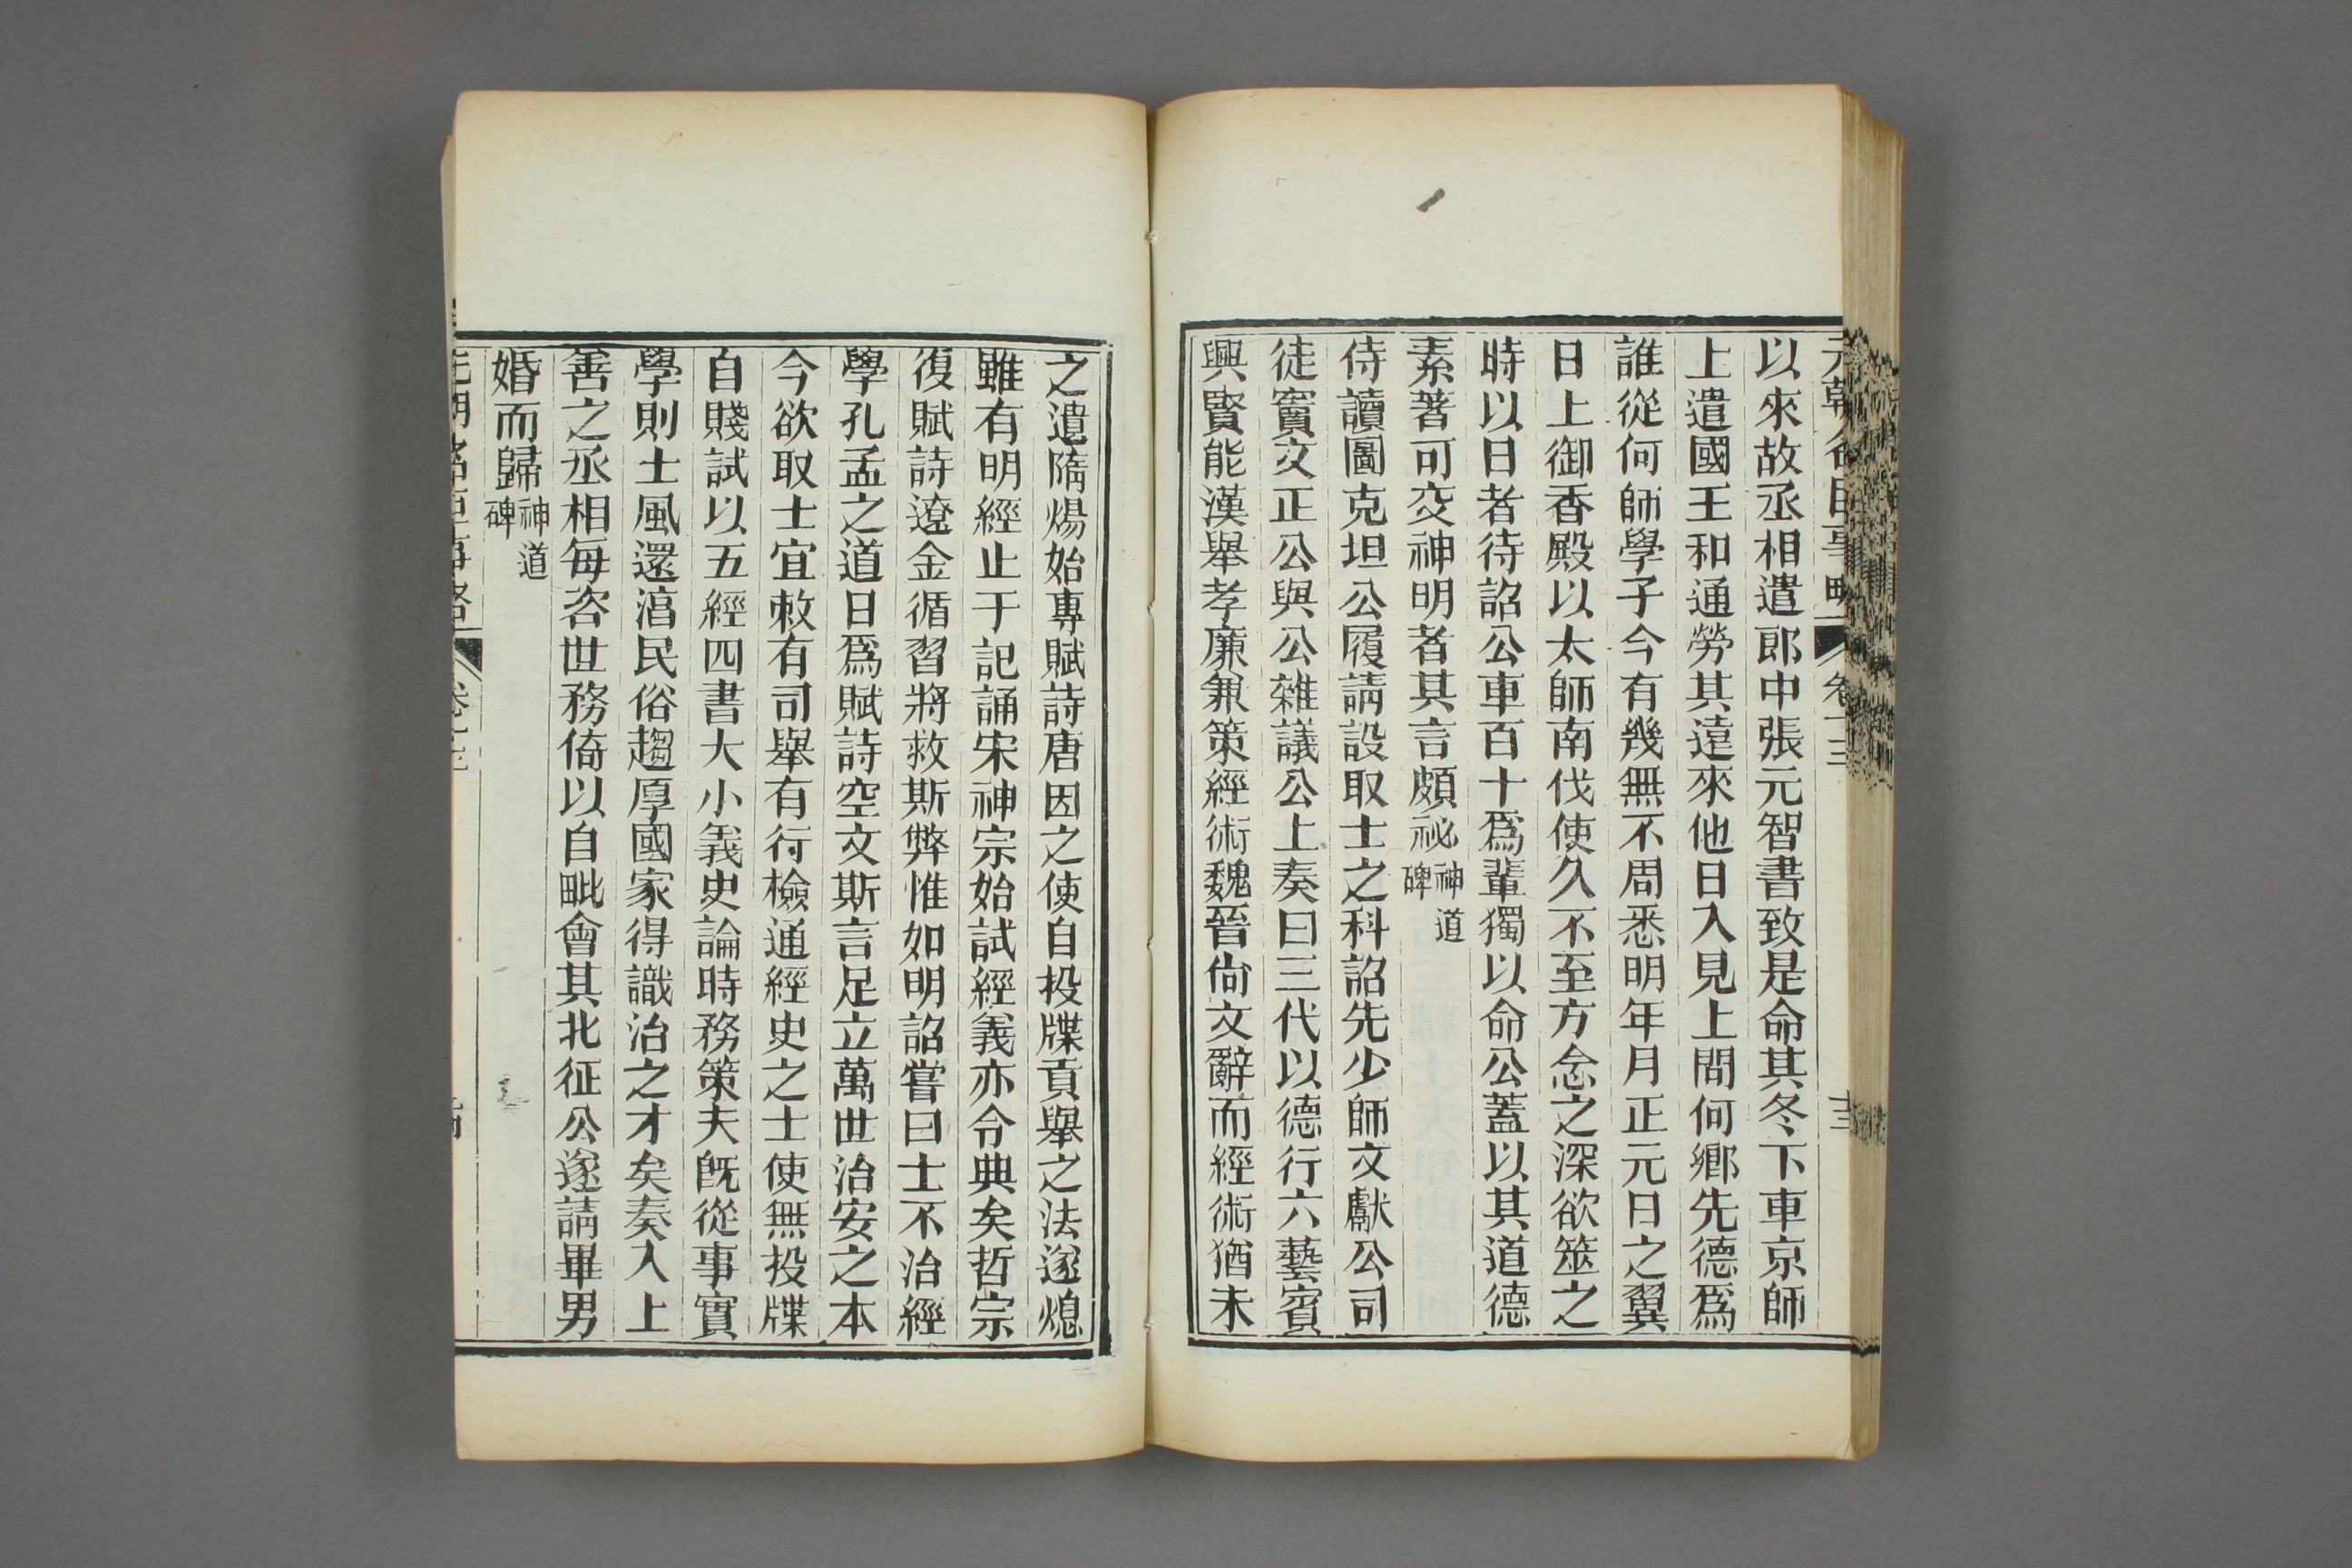 元朝名臣事略 卷十三 十三
以來故丞相遣郎中張元智書致是命其冬下車京師
上遣國王和通勞其遠來他日入見上問何鄉先德爲
誰從何師學子今有幾無不周悉明年月正元日之翼
日上御香殿以太師南伐使久不至方念之深欲筮之
時以日者待詔公車百十爲輩獨以命公蓋以其道德
素著可交神明者其言頗祕神道碑
侍讀圖克坦公履請設取士之科詔先少師文獻公司
徒竇文正公與公雜議公上奏曰三代以德行六藝賓
興賢能漢舉孝廉兼策經術魏晉尙文辭而經術猶未
之遺隋煬始專賦詩唐因之使自投牒貢舉之法遂熄
雖有明經止于記誦宋神宗始試經義亦令典矣哲宗
復賦詩遼金循習將救斯弊惟如明詔嘗曰士不治經
學孔孟之道日爲賦詩空文斯言足立萬世治安之本
今欲取士宜敕有司舉有行檢通經史之士使無投牒
自賤試以五經四書大小義史論時務策夫旣從事實
學則士風還淳民俗趨厚國家得識治之才矣奏入上
善之丞相每咨世務倚以自毗會其北征公遂請畢男
婚而歸神道碑
元朝名臣事略